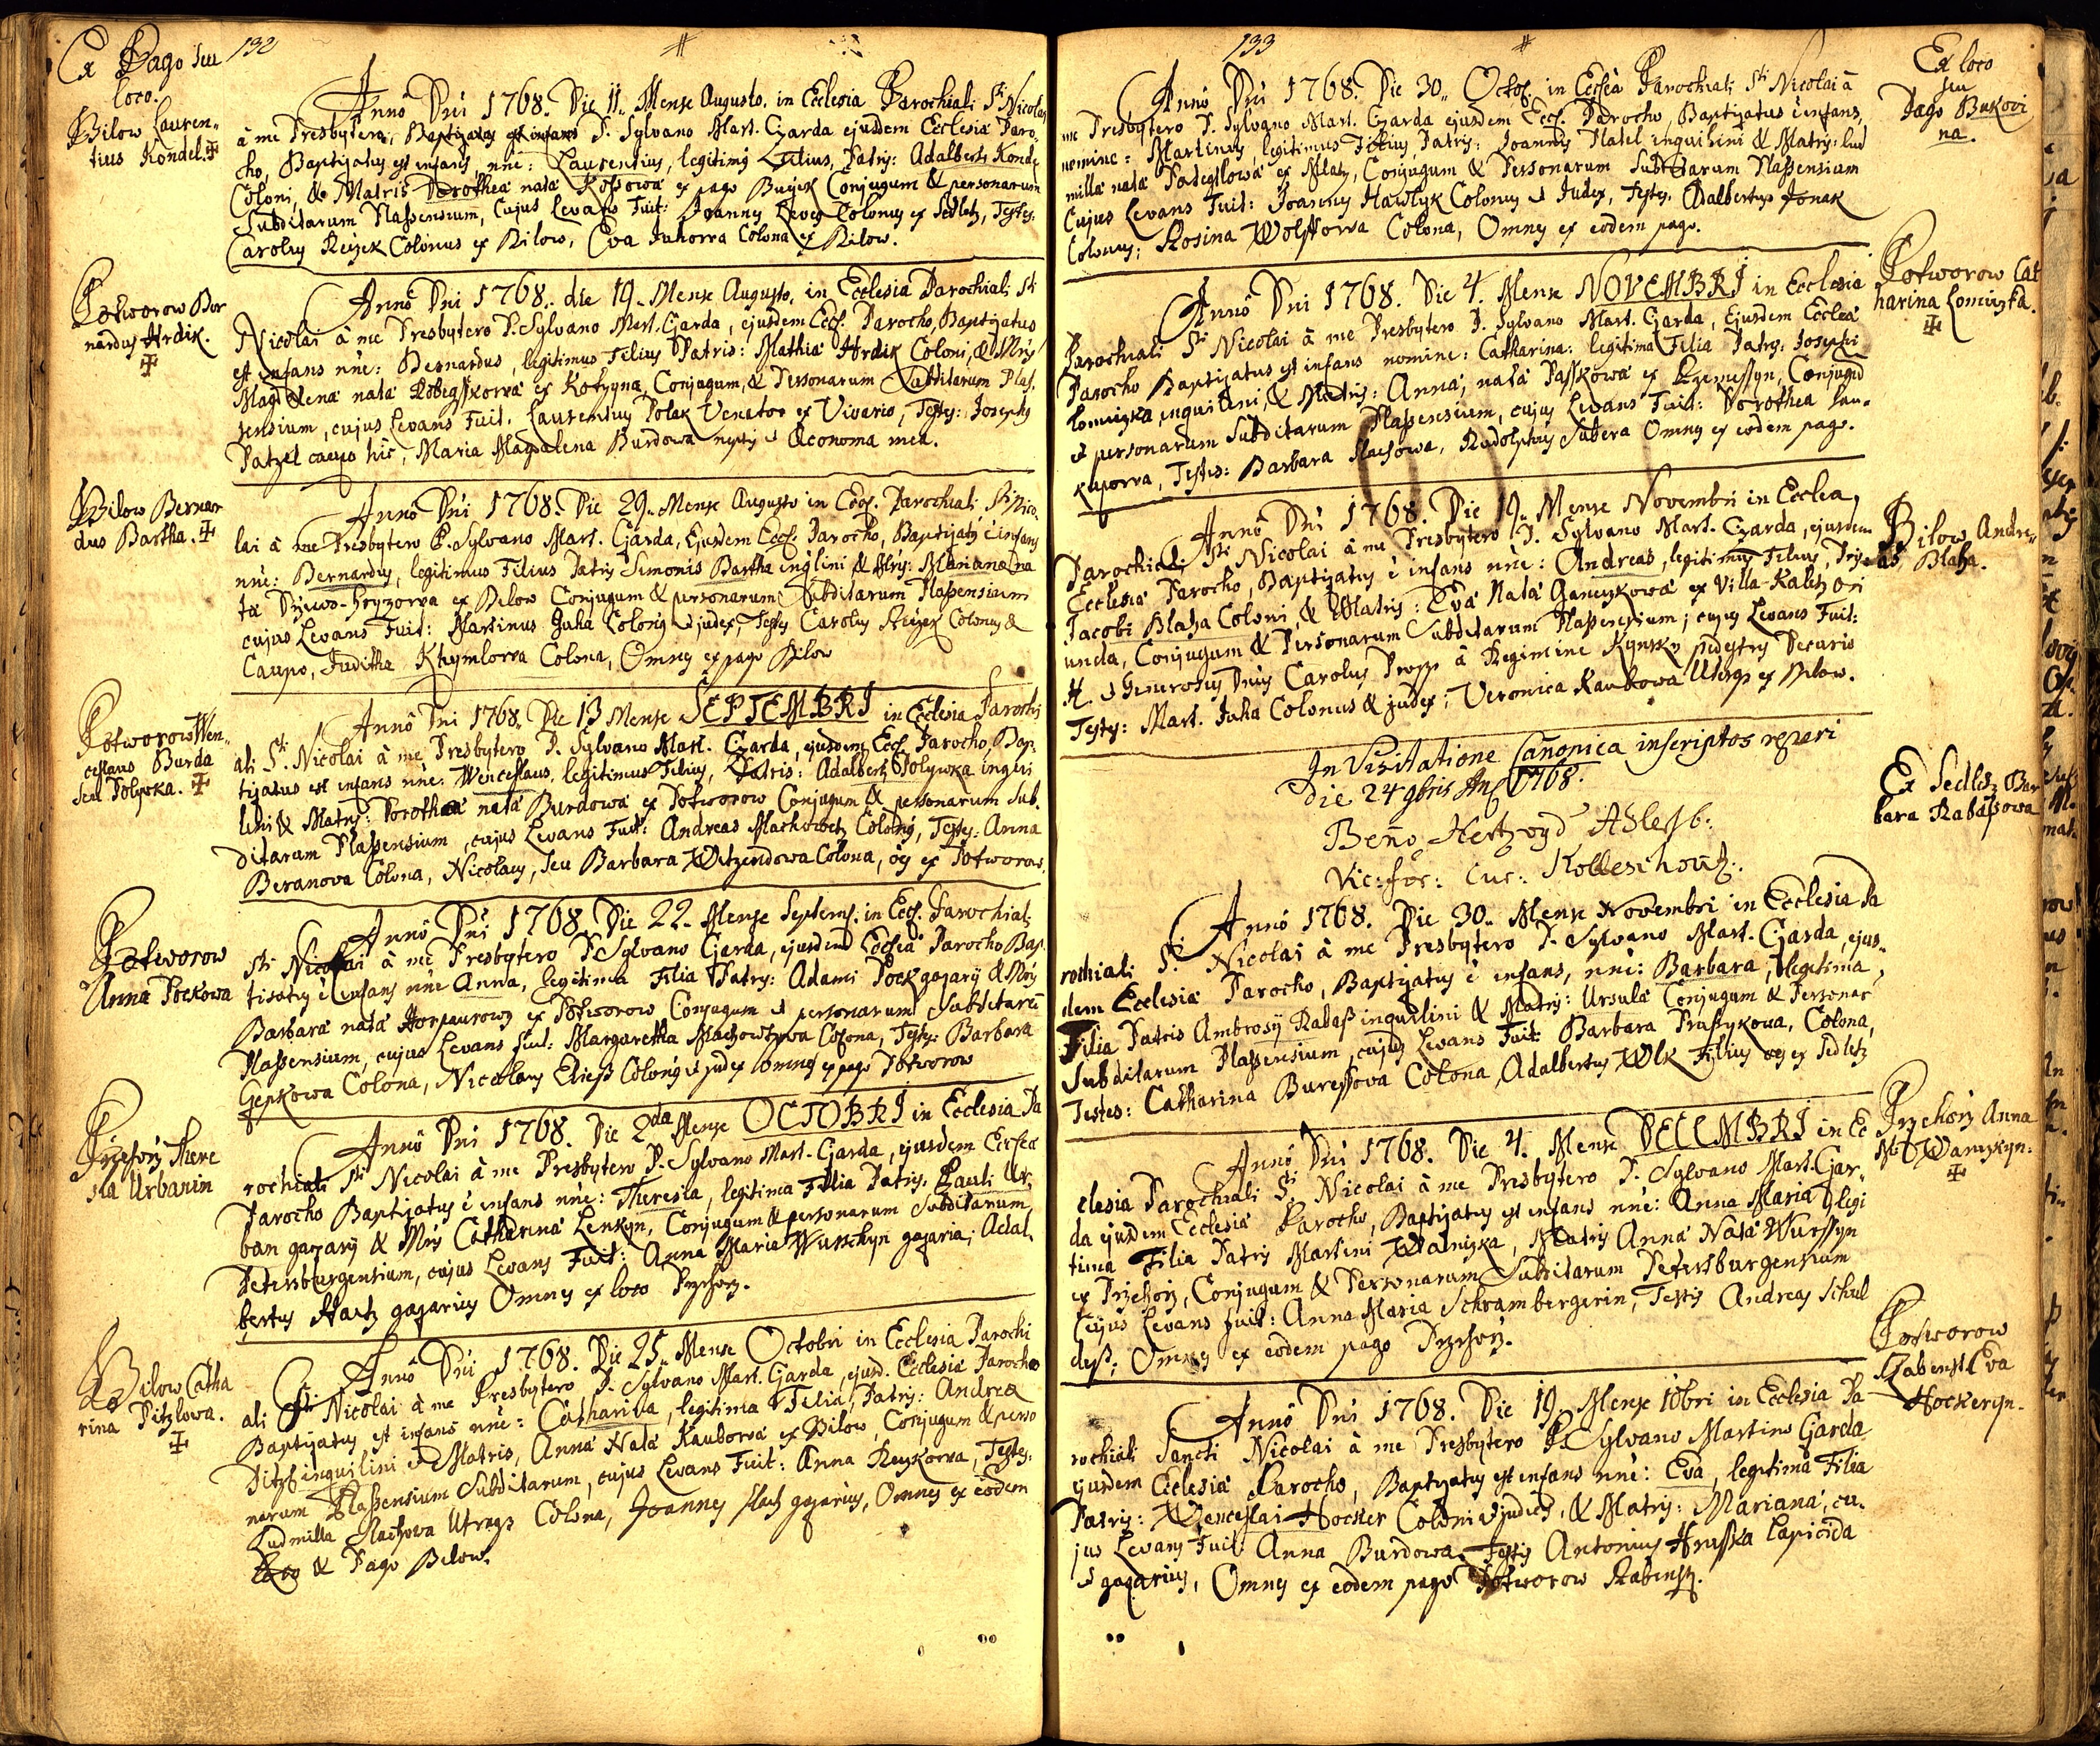 132
Ex Pago seu
loco.
Bilow Lauren„
tius Kondel.
Anno Dni 1768. Die 11. Mense Augusto. in Ecclesia Parochiali Sti Nicolai
à me Presbytero, Baptizatus est infans P. Sylvano Mart. Czarda ejusdem Ecclesiæ Paro„
cho, Baptizatus est infans nñe: Laurentius, legitimus Filius, Patris: Adalberti Konde
Coloni, & Matris Dorothea nata Kossowa ex pago Buczek Conjugum & personarum
Subditarum Plassensium, Cujus Levans Fuit: Joannes Colonus ex Sedletz, Testes
Carolus Reizek Colonus ex Bilow, Eva Juhowa Colona ex Bilow.
Potworow Ber
nardus Hrdik.
Anno Dni 1768. die 19. Mense Augusto, in Ecclesia Parochiali Sti
Nicolai à me Presbytero P. Sylvano Mart. Czarda, ejusdem Eccl. Parocho, Baptizatus
est infans nñe: Bernardus, legitimus Filius Patris: Mathiæ Hrdik Coloni, & Mris
Magdalena nata ex Kotzyna, Conjugum, & Personarum Subditarum Plas.
sensium, cujus Levans Fuit. Laurentius Polak Venator ex Vivario, Testes: Josephus
Patzel caupo hic, Maria Magdalena Burdowa neptis & Œconoma mea.
Bilow Bernar
dus Bartha.
Anno Dni 1768. Die 29. Mense Augusto in Eccl. Parochiali Sti Nico.
lai à me Presbytero P. Sylvano Mart. Czarda, Ejusdem Eccl. Parocho, Baptizatus è infans
nñe: Bernardus, legitimus Filius Patris Simonis Bartha inqlini & Mris: Mariana na
ta ex Bilow Conjugum & personarum Subditarum Plassensium
cujus Levans Fuit: Martinus Juha Colonus & judex, Testes Carolus Reizek Colonus &
Caupo, Juditha Khymlowa Colona, Omnes ex pago Bilow
Potworow Wen„
ceslaus Burda
seu Polywka.
Anno Dni 1768. Die 13 Mense SEPTEMBRI in Ecclesia Parochi
ali Sti. Nicolai à me Presbytero P. Sylvano Mart. Czarda, ejusdem Eccl. Parocho, Bap:
tizatus est infans nñe: Wenceslaus, legitimus Filius, Patris: Adalberti Polywka inqui
lini & Matris: Dorothea nata Burdowa ex Potworow Conjugum & personarum Sub.
ditarum Plassensium, cujus Levans Fuit: Andreas Machowetz Colonus, Testes: Anna
Beranova Colona, Nicolaus, seu Barbara Witzendowa Colona, oes ex Potworow.
Potworow
Anna Pockowa
Anno Dni 1768. Die 22. Mense Septemb. in Eccl. Parochiali
Sti Nicolai à me Presbytero P. Sylvano Czarda, ejusdem Ecclesiæ Parocho Bap.
tizatus è infans nñe Anna, legitima Filia Patris: Adami Pock gazarij & Mris
Barbara nata ex Potworow Conjugum & personarum Subditarũ
Plassensium, cujus Levans fuit: Margaretha Colona, Testes: Barbara
Colona, Nicolaus Eliess Colonus & judex Omnes ex pago Potworow
Przehorz There
sia Urbanin
Anno Dni 1768. Die 2da Mense OCTOBRI in Ecclesia Pa
rochiali Sti Nicolai à me Presbytero P. Sylvano Mart. Czarda, ejusdem Ecclesiæ
Parocho Baptizatus è infans nñe: Theresia, legitima Filia Patris: Pauli Ur,
ban gazarij & Mris Catharina Lenkyn, Conjugum & personarum Subditarum
Petersburgensium, cujus Levans Fuit: Anna Maria Wunschyn gazaria; Adal.
bertus Hach gazarius Omnes ex loco Przehorz.
Bilow Catha
rina Pitzlowa.
Anno Dni 1768. Die 25. Mense Octobri in Ecclesia Parochi
ali Sti Nicolai à me Presbytero P. Sylvano Mart. Czarda, ejusd. Ecclesiæ Parocho
Baptizatus est infans nñe: Catharina, legitima Filia, Patris: Andrea
Pitzl inquilini & Matris, Anna Nata Kaubowa ex Bilow, Conjugum & perso
narum Plassensium Subditarum, cujus Levans Fuit: Anna Reyzkowa, Testes:
Ludmilla Machowa Utraqs Colona, Joannes Mach gazarius, Omnes ex eodem
Loco & Pago Bilow.
133
Anno Dni 1768. Die 30. Octob. in Ecclesia Parochiali Sti Nicolai à
me Presbytero P. Sylvano Mart. Czarda ejusdem Eccl. Parocho, Baptizatus è infans,
nomine: Martinus, legitimus Filius Patris: Joannis Platel inquilini & Matris: Lud
milla nata ex Mlatz, Conjugum & Personarum Subditarum Plassensium
Cujus Levans Fuit: Joannes Hawlyk Colonus & Judex, Testes, Adalbertus Jonak
Colonus; Rosina Wolffowa Colona, Omnes ex eodem pago.
Ex loco
seu
Pago Bukovi
na.
Anno Dni 1768. Die 4. Mense NOVEMBRI in Ecclesia
Parochiali Sti Nicolai à me Presbytero P. Sylvano Mart. Czarda, Ejusdem Ecclesiæ
Parocho Baptizatus est infans nomine: Catharina: legitima Filia Patris: Josephi
Lomiczka inquilini, & Matris: Anna, nata Passkowa ex Krzemessyn, Conjugũ
& personarum Subditarum Plassensium, cujus Levans Fuit: Dorothea Lau„
kupowa, Testes: Barbara Machowa, Rudolphus Subera Omnes ex eodem pago.
Potworow Cat
harina Lomiczka.
Anno Dni 1768. Die 19. Mense Novembri in Ecclia,
Parochiali Sti Nicolai à me Presbytero P. Sylvano Mart. Czarda, ejusdem
Ecclesiæ Parocho, Baptizatus è infans nñe: Andreas, legitimus Filius, Pris
Jacobi Blaha Coloni, & Matris: Eva Nata Ganczkowa ex Villa Kaletz ori
unda, Conjugum & Personarum Subditarum Plassensium; cujus Levans Fuit:
& Generosus Dnus Carolus à Regimine Kynsky pedestris Decurio
Testes: Mart. Juha Colonus & judex; Veronica Kaubowa Utraqs ex Bilow.
Bilow Andre„
as Blaha.
In Visitatione Canonica inscriptos reperi
Die 24 9bris An 1768.
Beno Hertzogd
Vic: for: Cur: Kolleschow.
Ex Sedletz Bar
bara Rabassowa
Anno 1768. Die 30. Mense Novembri in Ecclesia Pa
rochiali Sti Nicolai à me Presbytero P. Sylvano Mart. Czarda, ejus„
dem Ecclesiæ Parocho, Baptizatus è infans, nñe: Barbara, legitima
Filia Patris Ambrosij Rabass inquilini & Matris: Ursula Conjugum & Personar
Subditarum Plassensium, cujus Levans Fuit Barbara Prussykova, Colona,
Testes: Catharina Buressova Colona, Adalbertus Wlk Filius oes ex Sedletz
Anno Dni 1768. Die 4. Mense DECEMBRI in Ec
clesia Parochiali Sti Nicolai à me Presbytero P. Sylvano Mart. Czar„
da ejusdem Ecclesiæ Parocho, Baptizatus est infans nñe: Anna Maria legi
tima Filia Patris Martini Watniczka, Matris Anna Nata Wurssyn
ex Przehorz, Conjugum & Personarum Subditarum Petersburgensium
Cujus Levans fuit: Anna Maria Schrambergerin, Testis Andreas Schul
dess; Omnes ex eodem pago Przehorz.
Przehorz Anna
Anno Dni 1768. Die 19. Mense 10bri in Ecclesia Pa
rochiali Sancti Nicolai à me Presbytero P. Sylvano Martino Czarda
ejusdem Ecclesiæ Parocho, Baptizatus est infans nñe: Eva, legitima Filia
Patris: Wenceslai Hocker Coloni & judicis, & Matris: Mariana, cu.
jus Levans Fuit Anna Burdowa, Testis Antonius Hrusska Lapicida
& gazarius, Omnes ex eodem pago Potworow Rabenst.
Potworow
Rabenst. Eva
Hockeryn.